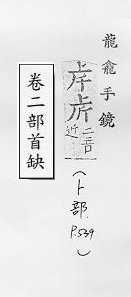 龍龕手鏡
二
近
(卜部 P.539)
卷二部首缺